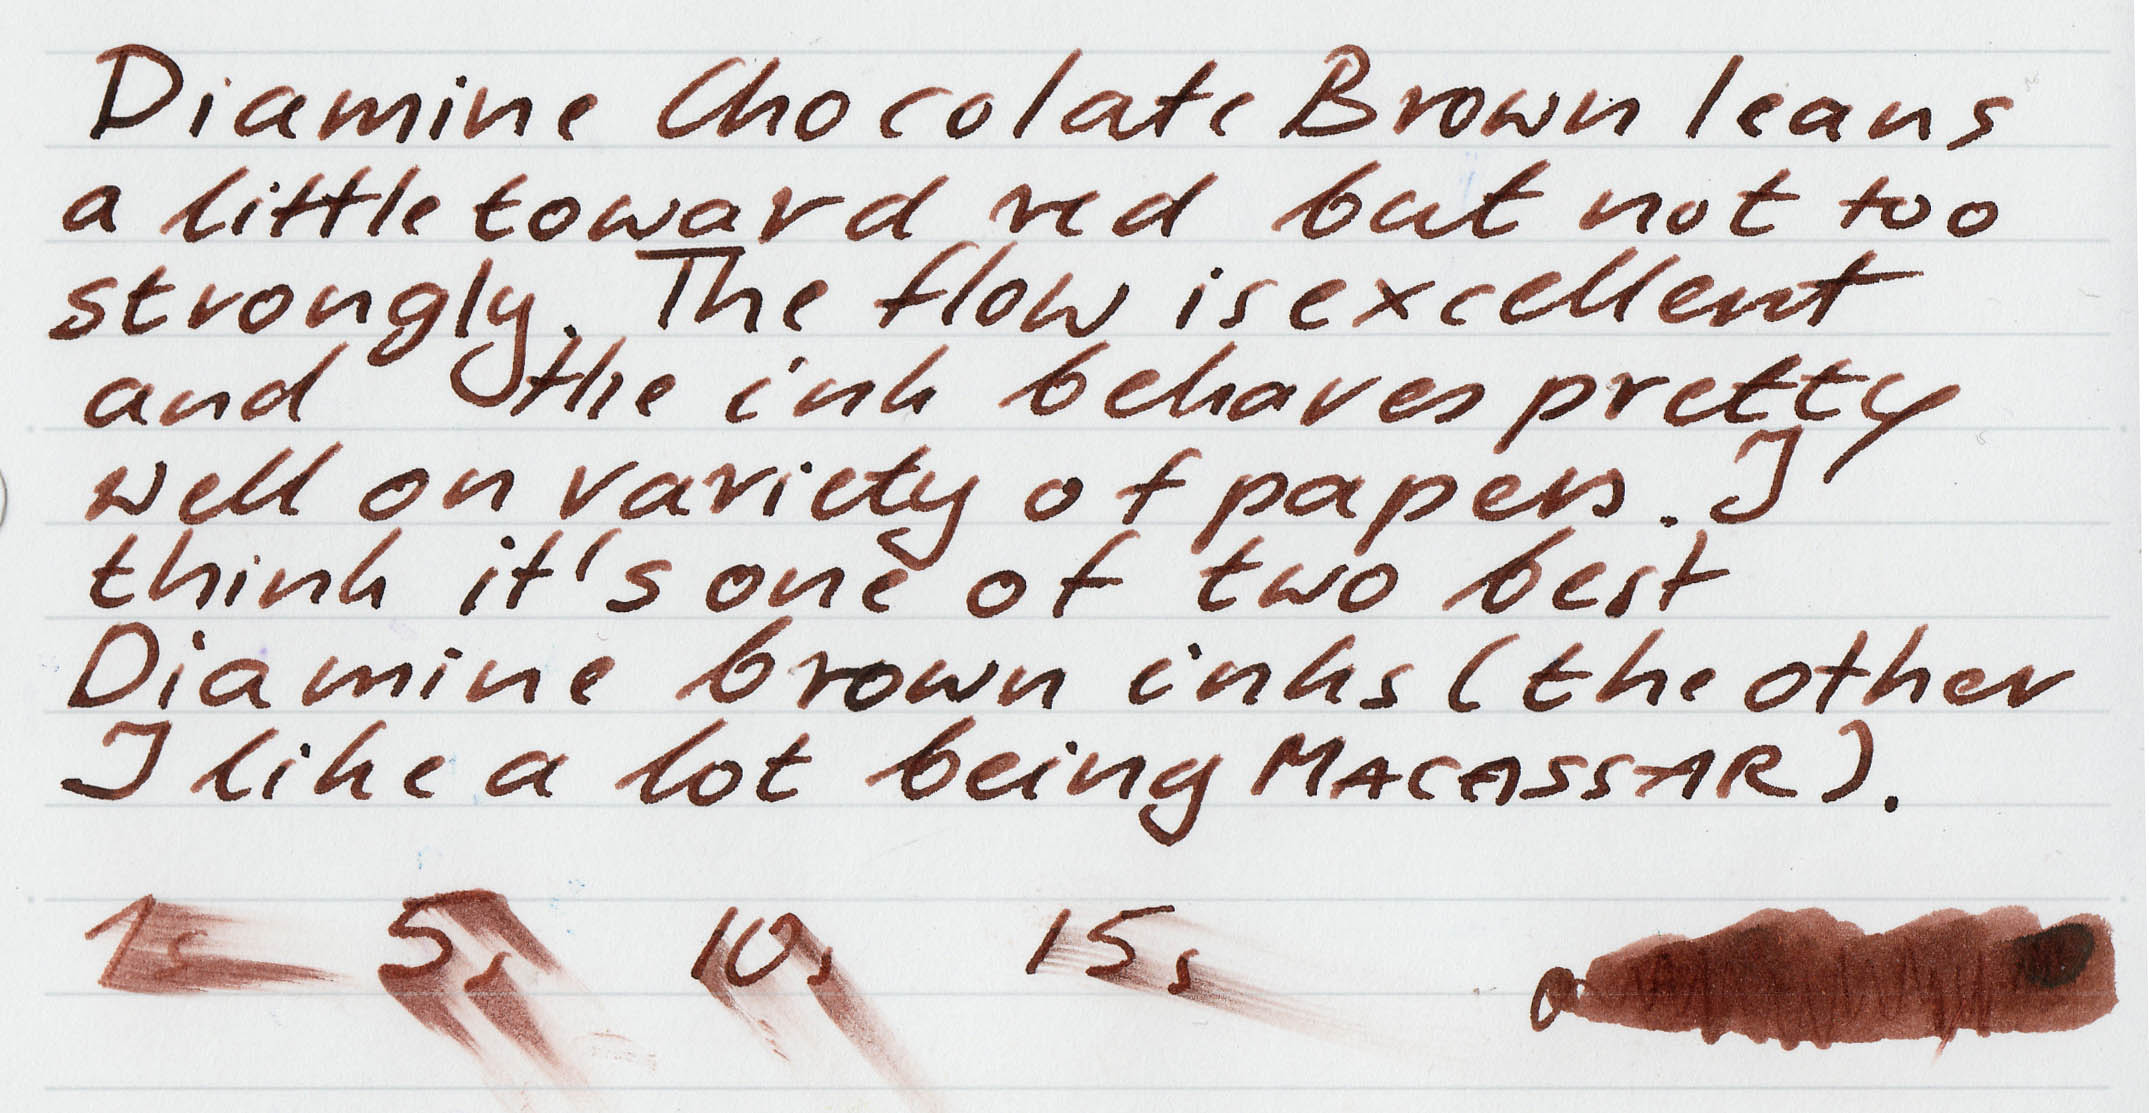 Diamine Chocolate Brown leans
a little toward red but not too
strongly. The flow is excellent
and the ink behaves pretty
well on variety of papers. I
think it's one of two best
Diamine brown inks (the other
I like a lot being MACASSAR).
1s 5s 10s 15s